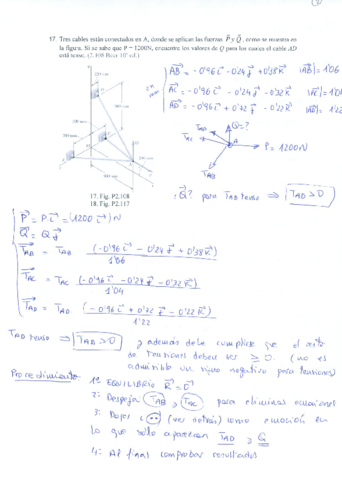 17. Tres cables están conectados en A, donde se aplican las fuerzas P⃗ y Q⃗, como se muestra en
la figura. Si se sabe que P = 1200N, encuentre los valores de Q para los cuales el cable AD
está tenso. (2.108 Beer 10ª ed.)
AB⃗ = -0'96 i⃗ - 0'24 j⃗ + 0'38 k⃗ |AB⃗| = 1'06
AC⃗ = -0'96 i⃗ - 0'24 j⃗ - 0'22 k⃗
AD⃗ = -0'96 i⃗ + 0'72 j⃗ - 0'22 k⃗ |AD⃗| = 1'22
T_AD Q⃗ = ?
T_AC
A
P = 1200 N
T_AB
17. Fig. P2.108
18. Fig. P2.117
¿Q⃗? para T_AD tenso ⟹ T_AD > 0
P⃗ = P i⃗ = (1200 i⃗) N
Q⃗ = Q j⃗
T⃗_AB = T_AB (-0'96 i⃗ - 0'24 j⃗ + 0'38 k⃗) / 1'06
T⃗_AC = T_AC (-0'96 i⃗ - 0'24 j⃗ - 0'22 k⃗) / 1'04
T⃗_AD = T_AD (-0'96 i⃗ + 0'72 j⃗ - 0'22 k⃗) / 1'22
T_AD tenso ⟹ T_AD > 0 y además debe cumplirse que el resto
de tensiones deben ser ≥ 0. (no es
admisible un signo negativo para tensiones)
Procedimiento: 1º EQUILIBRIO R⃗ = 0⃗
2º Despejar T_AB y T_AC para eliminar ecuaciones
3º Dejar (ver detrás) como ecuación en
lo que sólo aparecen T_AD y Q
4º Al final comprobar resultados